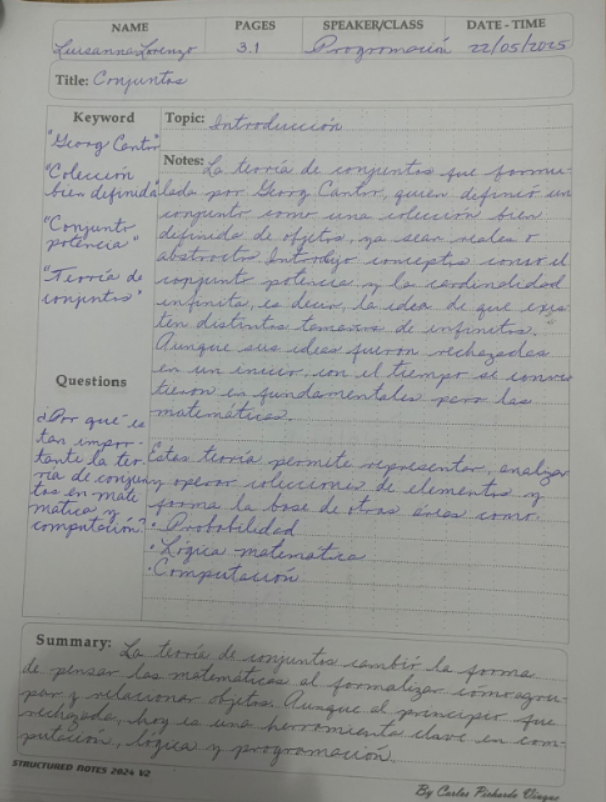 NAME PAGES SPEAKER/CLASS DATE - TIME
Luisanna Lorenzo 3.1 Programación 22/05/2025
Title: Conjuntos
Keyword
"Georg Cantor"
"Colección
bien definida"
"Conjunto
potencia"
"Teoría de
conjuntos"
Questions
¿Por qué es
tan impor-
tante la teo-
ría de conjun-
tos en mate
mática y
computación?
Topic: Introducción
Notes: La teoría de conjuntos fue formu-
lada por Georg Cantor, quien definió un
conjunto como una colección bien
definida de objetos, ya sean reales o
abstractos. Introdujo conceptos como el
conjunto potencia, y la cardinalidad
infinita, es decir, la idea de que exis
ten distintos tamaños de infinitos.
Aunque sus ideas fueron rechazadas
en un inicio, con el tiempo se convir
tieron en fundamentales para las
matemáticas.
Estas teoría permite representar, analizar
y operar colecciones de elementos y
forma la base de otras áreas como:
• Probabilidad
• Lógica matemática
• Computación
Summary: La teoría de conjuntos cambió la forma
de pensar las matemáticas al formalizar cómo agru-
par y relacionar objetos. Aunque al principio fue
rechazada, hoy es una herramienta clave en com-
putación, lógica y programación.
STRUCTURED NOTES 2024 V2
By Carlos Pichardo Viuque